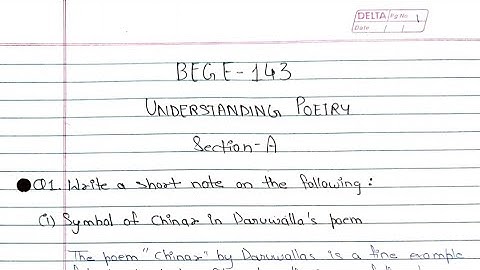 DELTA Pg No. 1
Date / /
BEGE-143
UNDERSTANDING POETRY
Section-A
Q1. Write a short note on the following:
(i) Symbol of Chinar in Daruwalla's poem
The poem "Chinar" by Daruwallas is a fine example